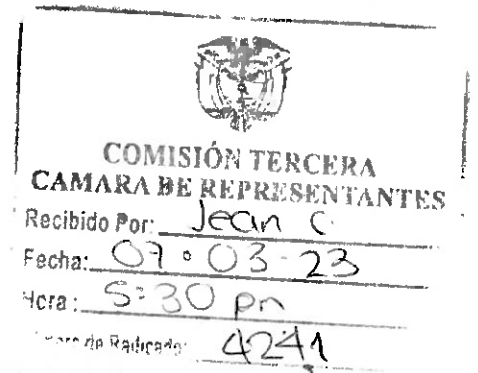 COMISIÓN TERCERA
CAMARA DE REPRESENTANTES
Recibido Por: Jean C.
Fecha: 07 • 03 - 23
Hora: 5:30 pn
de Radicado: 4241